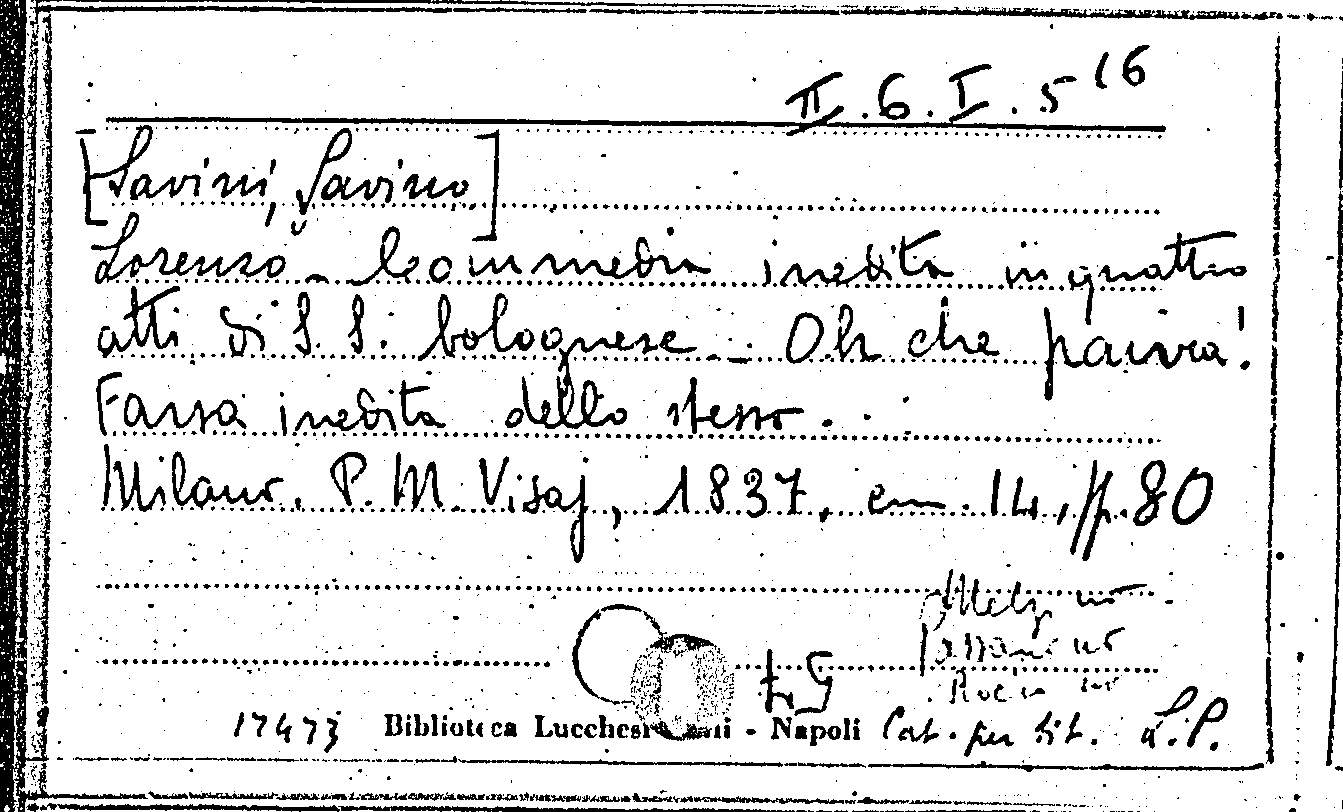 II.6.I.5 16
[Savini, Savino]
Lorenzo - Commedia inedita in quattro
atti di S. S. bolognese - Oh che paura!
Farsa inedita dello stesso.
Milano. P. M. Visaj, 1837. cm. 14, pp. 80
Melzi no.
Passano no
LG
17473 Biblioteca Lucchesi - Napoli Cat. per tit. L.P.